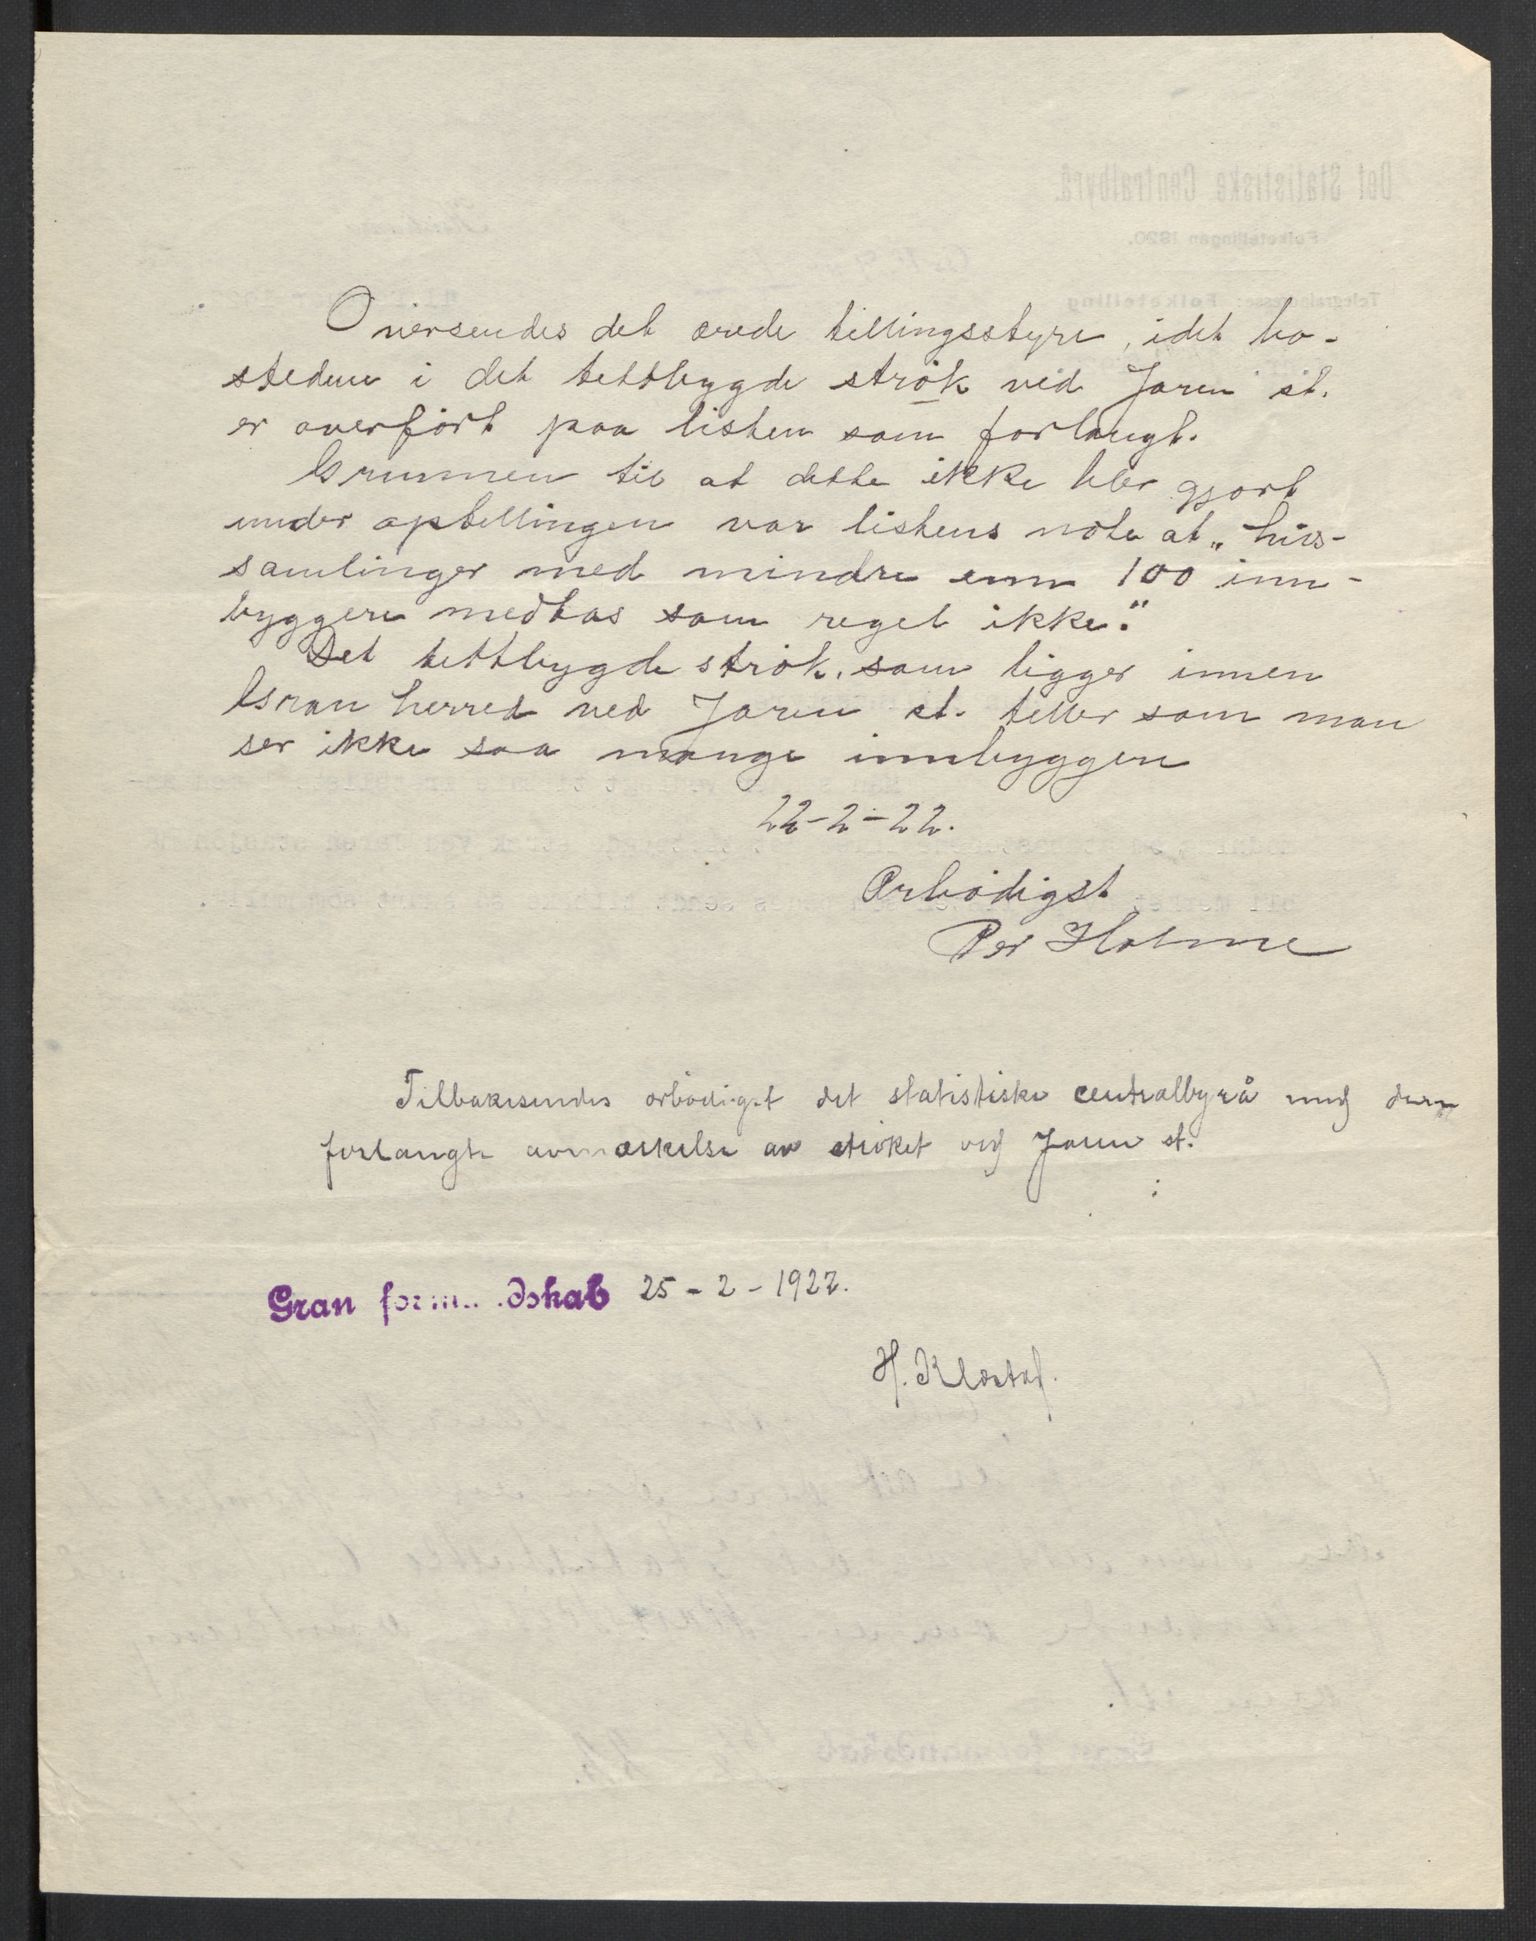 Oversendes det ærede tellingsstyre, idet bo-
stedene i det tettbygde strök ved Jaren st.
er overfört paa listen som forlangt.
Grunnen til at dette ikke blev gjort
under optellingen var listens note at „hus-
samlinger med mindre enn 100 inn-
byggere medtas som regel ikke."
Det tettbygde strök, som ligger innen
Gran herred ved Jaren st. teller som man
ser ikke saa mange innbyggere
22-2-22.
Ærbödigst
Per Holme
Tilbakesendes ærbödigst det statistiske centralbyrå med den
forlangte avmærkelse av ströket ved Jaren st.
Gran formandskab 25-2-1922.
H.
Det Statistiske Centralbyrå.
Folketellingen 1920.
Telegramadresse: Folketelling